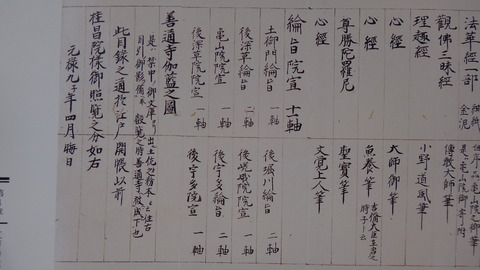 法華經一部 紺紙金泥
觀佛三昧經 傳教大師筆
理趣經 小野道風筆
心經 大師御筆
心經 魚養筆
尊勝陀羅尼 聖寶筆
心經 文覚上人筆
綸旨院宣 十一軸
土御門綸旨 一軸 後堀川綸旨 二軸
後深草綸旨 二軸 後嵯峨院院宣 一軸
亀山院院宣 一軸 後宇多綸旨 二軸
後深草院院宣 一軸 後宇多院宣 一軸
善通寺伽藍之圖
此目録之通於江戸開帳以前
桂昌院様御照覧之分如右
元禄九子年四月晦日